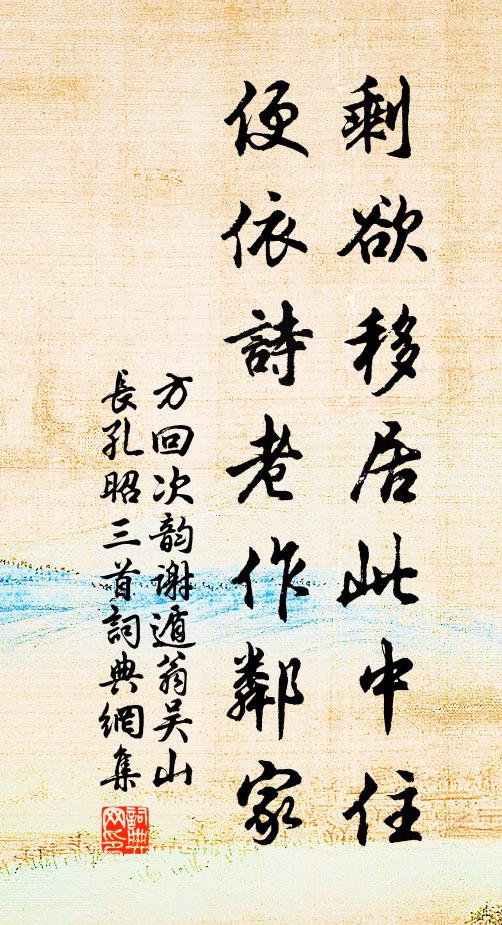 剩欲移居此中住
便依詩老作鄰家
方回次韵謝遁翁吴山
長孔昭三首詞典網集
詞典网印